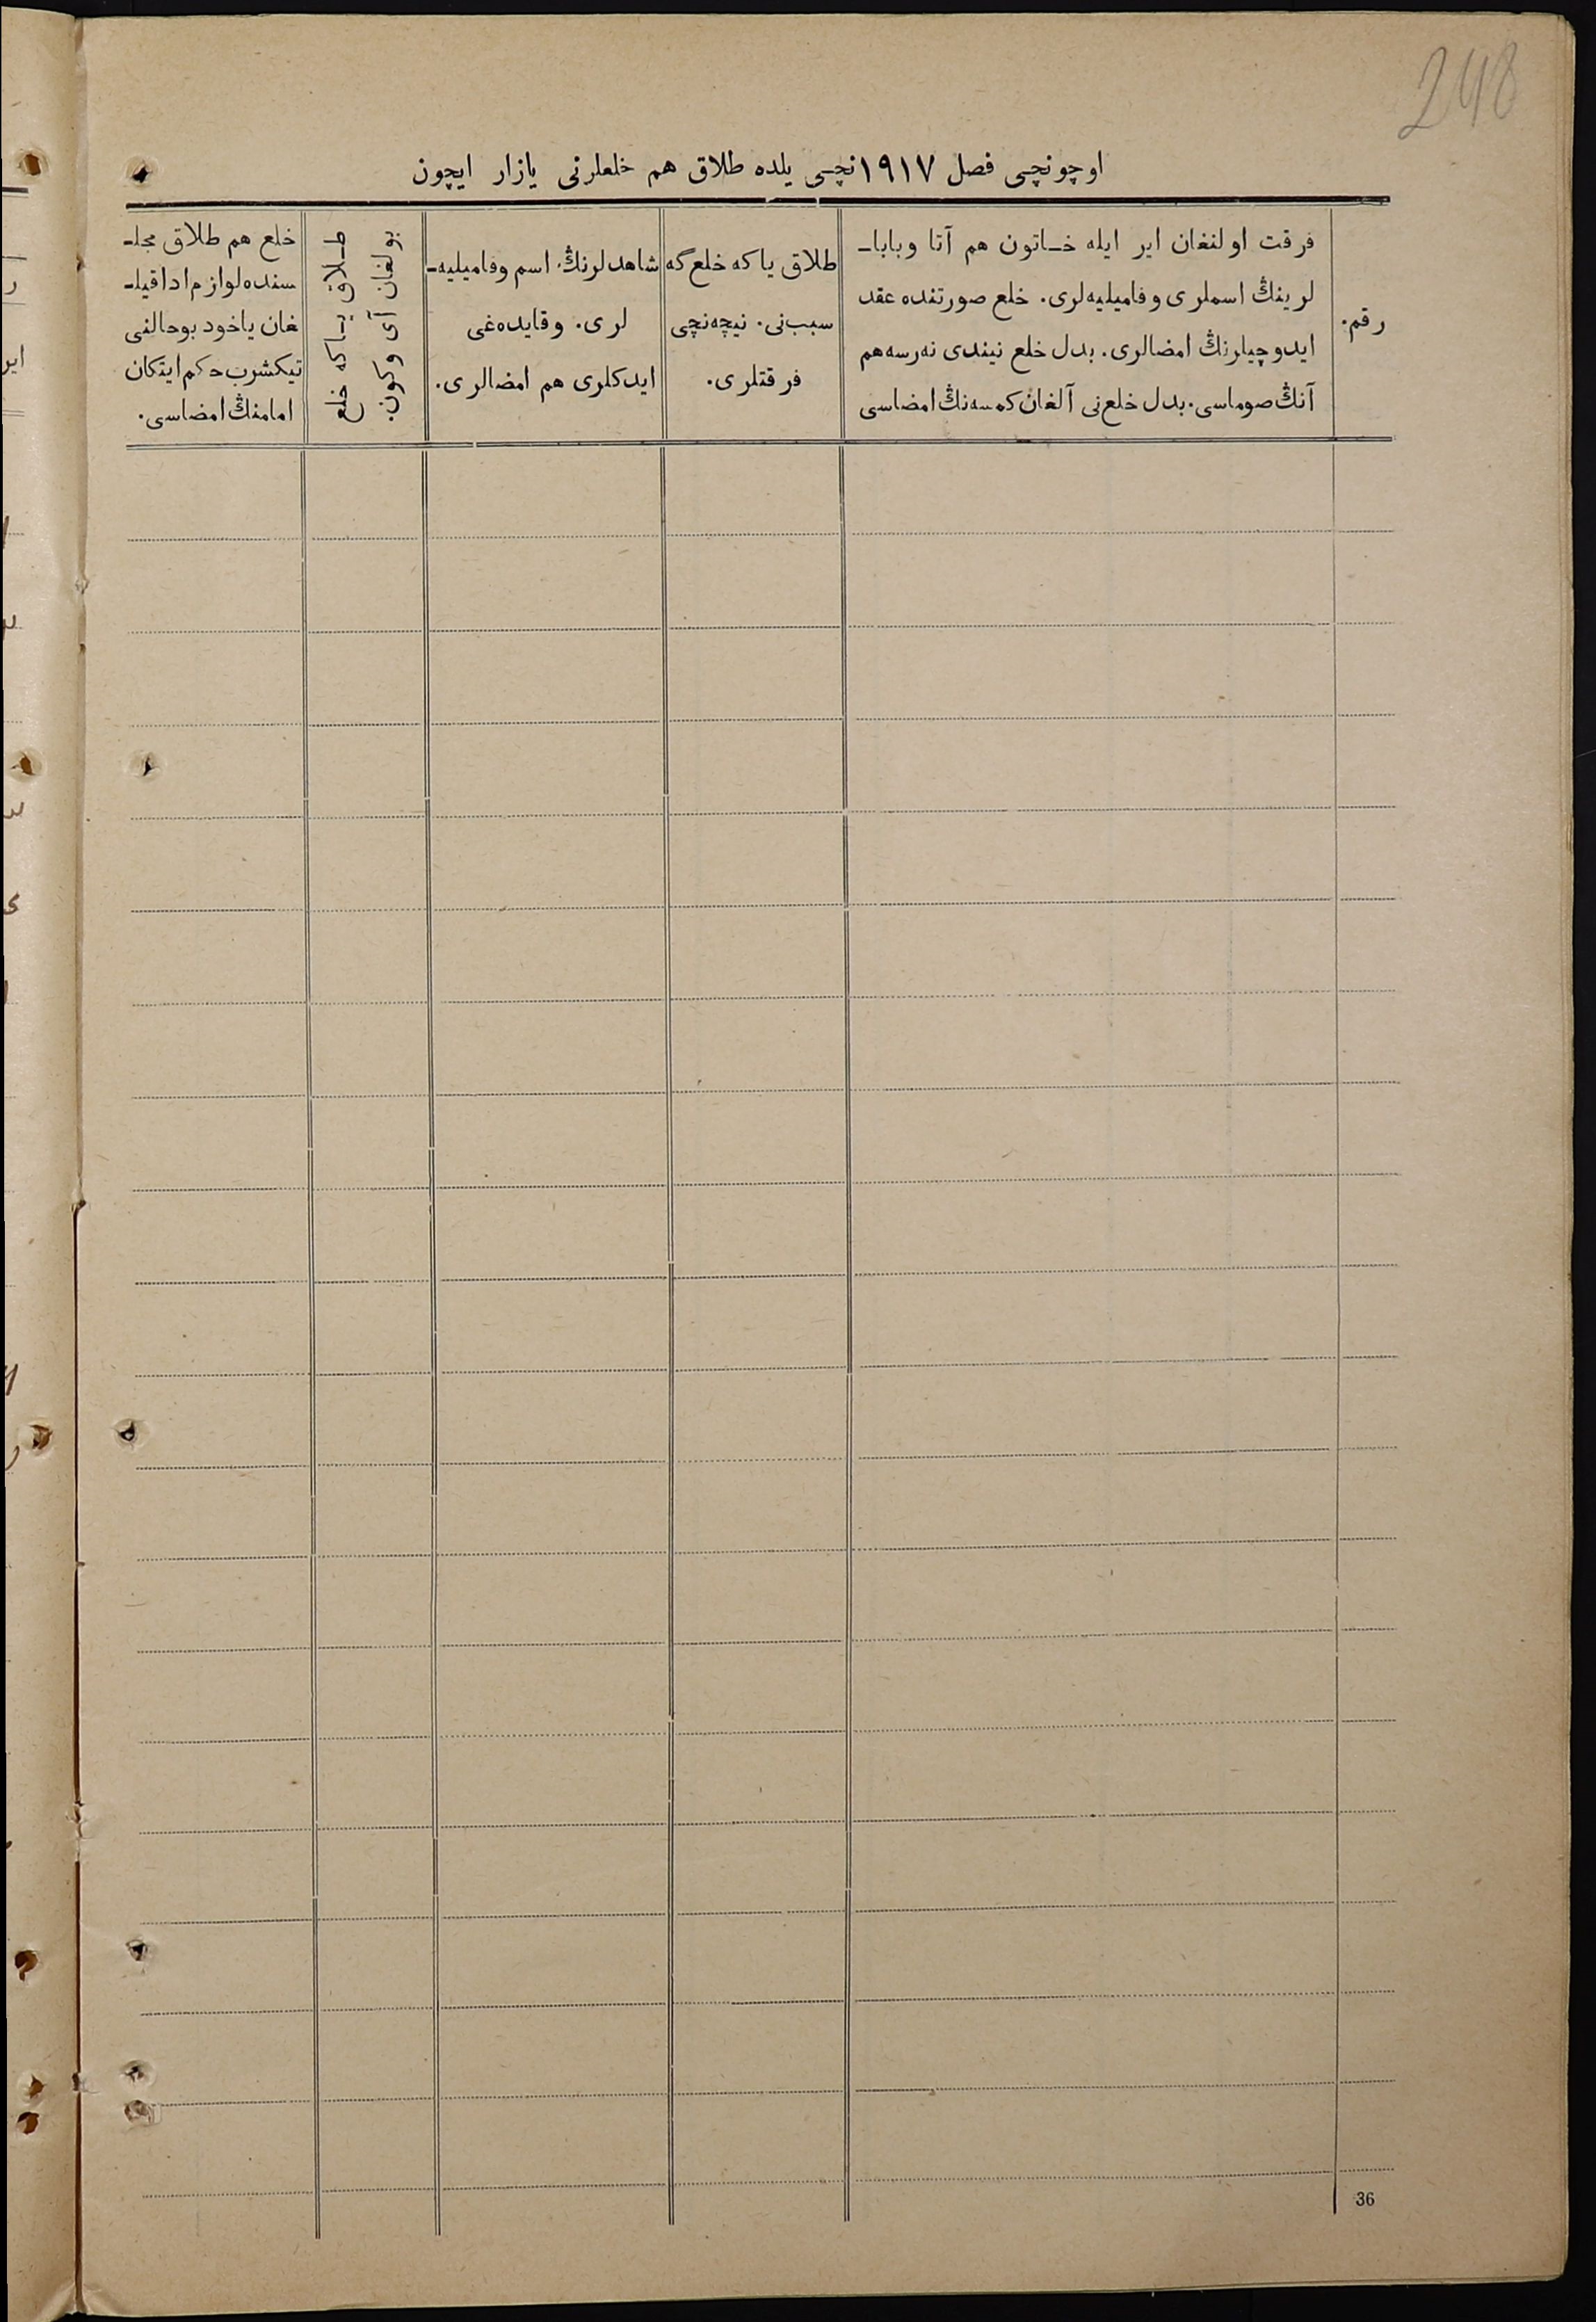 248
اوچونچی فصل ١٩١٧نچی یلده طلاق هم خلعلرنی یازار ایچون
رقم.
فرقت اولنغان ایر ایله خـاتون هم آتا وبابا-
لرینڭ اسملری وفامیلیه‌لری. خلع صورتنده عقد
ایدوچیلرنڭ امضالری. بدل خلع نیندی نه‌رسه هم
آنڭ صوماسی. بدل خلع‌نی آلغان کمسه‌نڭ امضاسی
طلاق یاکه خلع گه
سبب‌نی. نیچه‌نچی
فرقتلری.
شاهدلرنڭ اسم وفامیلیه-
لری. وقایده‌غی
ایدکلری هم امضالری.
طـلاق یـاکه خلع
بولغان آی وکون.
خلع هم طلاق مجلـ
سنده لوازم ادا قیلـ
غان یاخود بوحالنی
تیکشرب حکم ایتکان
امامنڭ امضاسی.
36